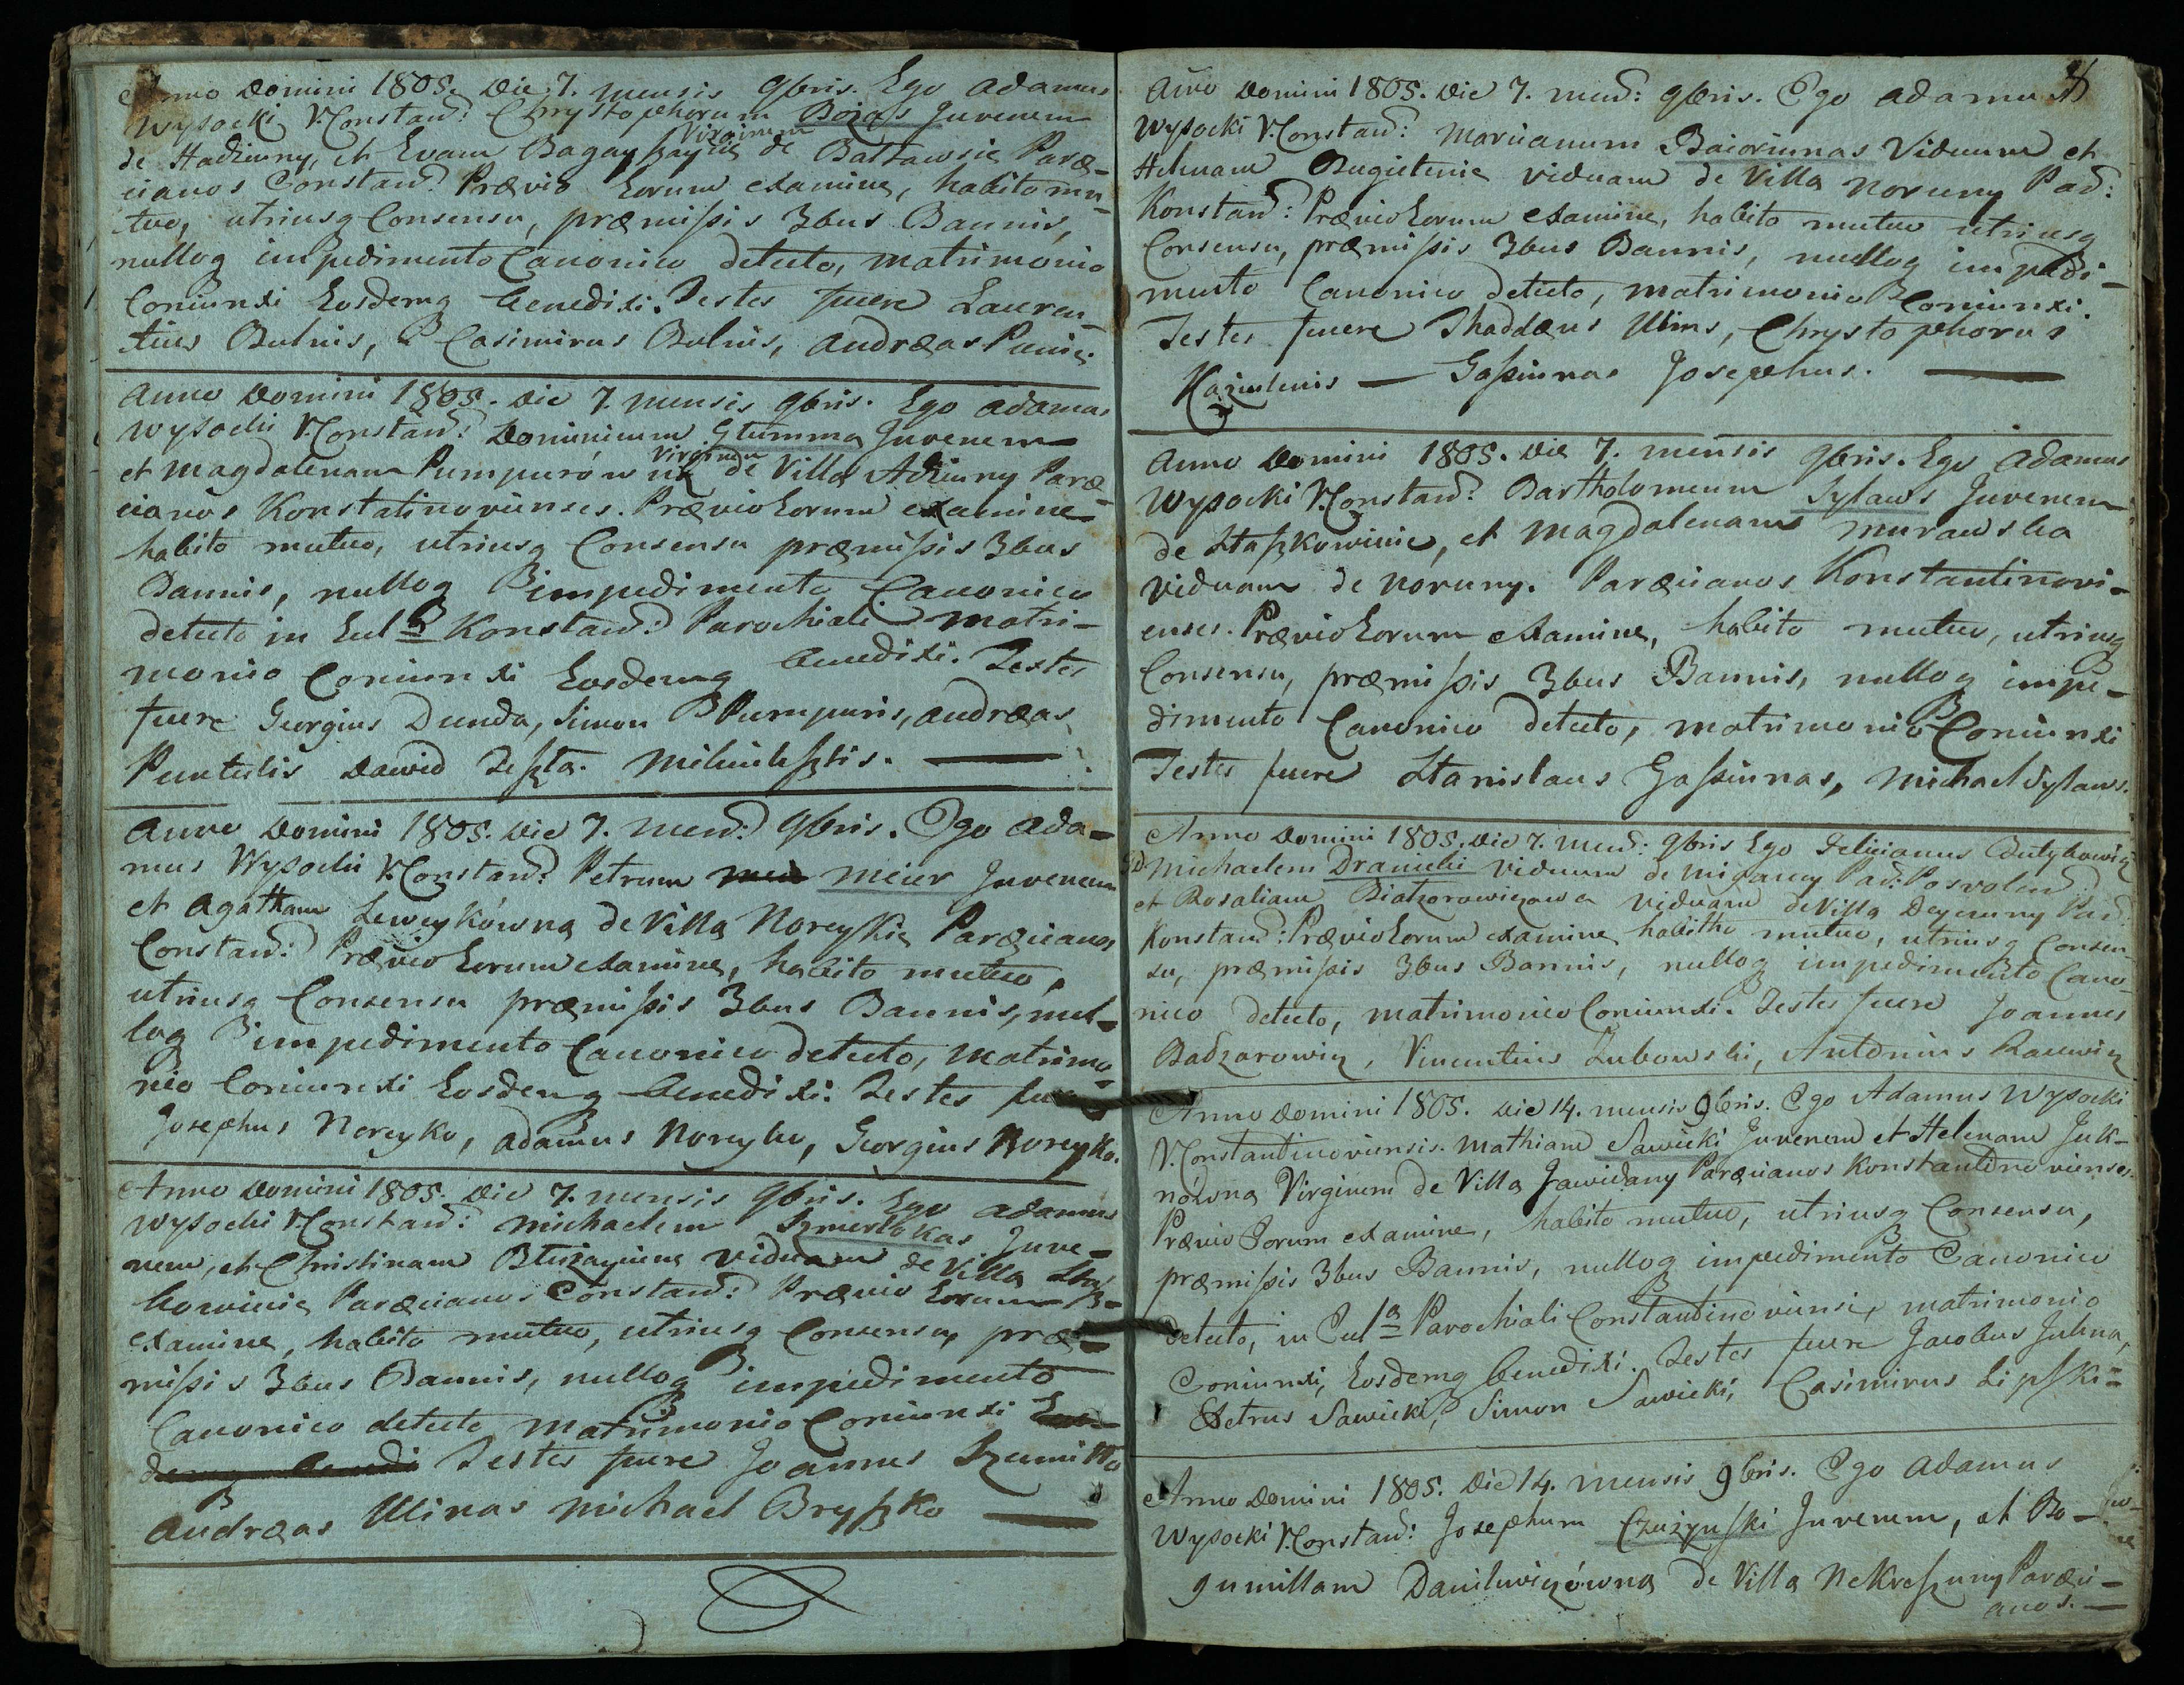 Anno Domini 1805. Die 7. mensis 9bris. Ego Adamus
Wysocki V. Constan: Chrystophorum Bozas Juvenem
Virginem
de Hadziuny, et Evam Bagayszaycie de Baltawsie Parœ-
cianos Constan: Prævio Eorum examine, habito mu-
tuo, utriusq Consensu, præmissis 3bus Bannis,
nulloq impedimento Canonico detecto, matrimonio
Coniunxi Eosdemq benedixi. Testes fuere Lauren-
tius Bulnis, Casimirus Bulnis, Andræas
Anno Domini 1805. Die 7. mensis 9bris. Ego Adamus
Wysocki V. Constan: Dominicum Glumma Juvenem
Virginem
et Magdalenam Pumpurów de Villa Adziuny Parœ-
cianos Konstatinovienses. Prævio Eorum examine
habito mutuo, utriusq Consensu præmissis 3bus
Bannis, nulloq impedimento Canonico
detecto in Eccl Konstan: Parochiali matri-
monio Coniunxi Eosdemq benedixi. Testes
fuere Georgius Dunda, Simon Pumpuris, Andræas
Puntulis Dawid
Anno Domini 1805. Die 7. Men: 9bris. Ego Ada-
mus Wysocki V. Constan: Petrum Meier Juvenem
et Agatham Leweykówna de Villa Noreykie Parœcianos
Constan: Prævio Eorum examine, habito mutuo,
utriusq Consensu præmissis 3bus Bannis, nul-
loq impedimento Canonico detecto, matrimo-
nio Coniunxi Eosdemq benedixi: Testes fuere
Josephus Noreyko, Adamus Noreyko, Georgius Noreyko.
Anno Domini 1805. Die 7. mensis 9bris. Ego Adamus
Wysocki V. Constan: Michaelem Szmerlokas Juve-
nem, et Christinam viduam de Villa Stasz-
kowinie Parœcianos Constan: Prævio Eorum
examine, habito mutuo, utriusq Consensu, præ-
missis 3bus Bannis, nulloq impedimento
Canonico detecto matrimonio Coniunxi
Testes fuere Joannes Szumitto
Andræas Ulinas Michael Bryszko
Anno Domini 1805. Die 7. men: 9bris. Ego Adamus
Wysocki V. Constan: Marcianum Baioriunas Viduum et
Helenam Bugietenie viduam de Villa Noruny Par:
Konstan: Prævio Eorum examine, habito mutuo utriusq
Consensu, præmissis 3bus Bannis, nulloq impedi-
mento Canonico detecto, matrimonio Coniunxi.
Testes fuere Thaddæus Ulins, Chrystophorus
Kazimlenis — Gassiunas Josephus.
Anno Domini 1805. Die 7. mensis 9bris. Ego Adamus
Wysocki V. Constan: Bartholomeum Sylaws Juvenem
de Staszkowinie, et Magdalenam Murawska
viduam de Noruny. Parœcianos Konstantinovi-
enses. Prævio Eorum examine, habito mutuo, utriusq
Consensu, præmissis 3bus Bannis, nulloq impe-
dimento Canonico detecto, matrimonio Coniunxi
Testes fuere Stanislaus Gassiunas, Michael Sylaws.
Anno Domini 1805. Die 7. Men: 9bris Ego Felicianus
Michaelem Dranicki viduum de Migauny Par: Posvolen
et Rosaliam Białzorowiczowa viduam de Villa Deyeuny Par:
Konstan: Prævio Eorum examine habitho mutuo, utriusq Consen-
su, præmissis 3bus Bannis, nulloq impedimento Cano-
nico detecto, matrimonio Coniunxi. Testes fuere Joannes
Badzarowicz, Vincentius Zubowski, Antonius
Anno Domini 1805. Die 14. mensis 9bris. Ego Adamus Wysocki
V. Constantinoviensis. Mathiam Sawicki Juvenem et Helenam Juk-
nówna Virginem de Villa Jawidany Parœcianos Konstantinovienses.
Prævio Eorum examine, habito mutuo, utriusq Consensu,
præmissis 3bus Bannis, nulloq impedimento Canonico
detecto, in Eccla Parochiali Constantinoviensi, matrimonio
Coniunxi, Eosdemq benedixi. Testes fuere Jacobus Juhna,
Petrus Sawicki, Simon Sawicki, Casimirus Lipski
Anno Domini 1805. Die 14. mensis 9bris. Ego Adamus
Wysocki V. Constan: Josephum Czużyński Juvenem, et Bo-
gumillam Danilewiczówna de Villa Nekreszuny Parœci-
anos.